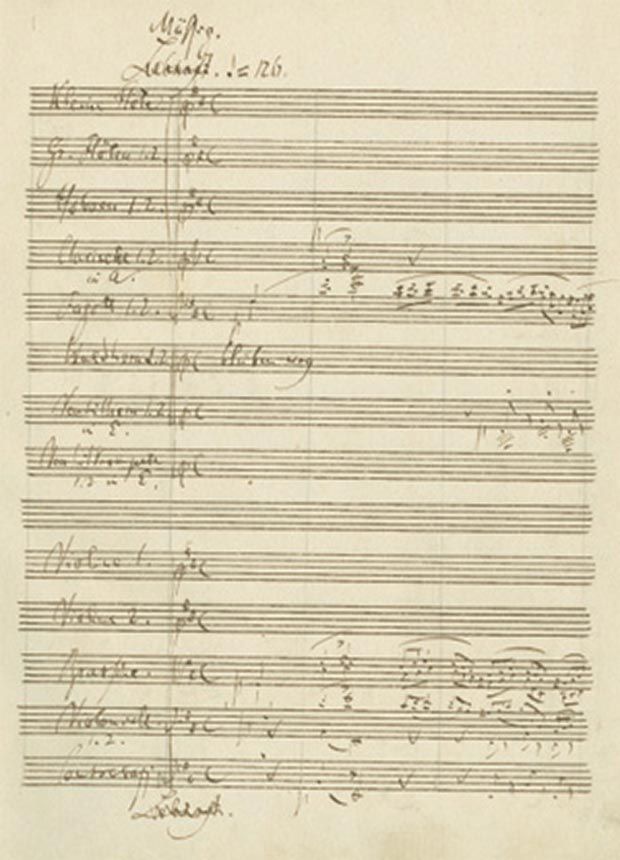 Mässig.
Lebhaft. ♩=126.
Kleine Flöte.
Gr. Flöten 1.2.
Hoboen 1.2.
Clarinette 1.2.
in A.
Fagotte 1.2.
Waldhorn 1.2. bleiben weg
Ventilhorn 1.2.
in E.
Ventiltrompete
1.2 in E.
Violine 1.
Violine 2.
Bratsche.
Violoncell.
1.2.
Contrabass
Lebhaft.